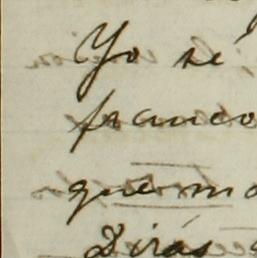 Yo sé
franco
quemo
Dirás